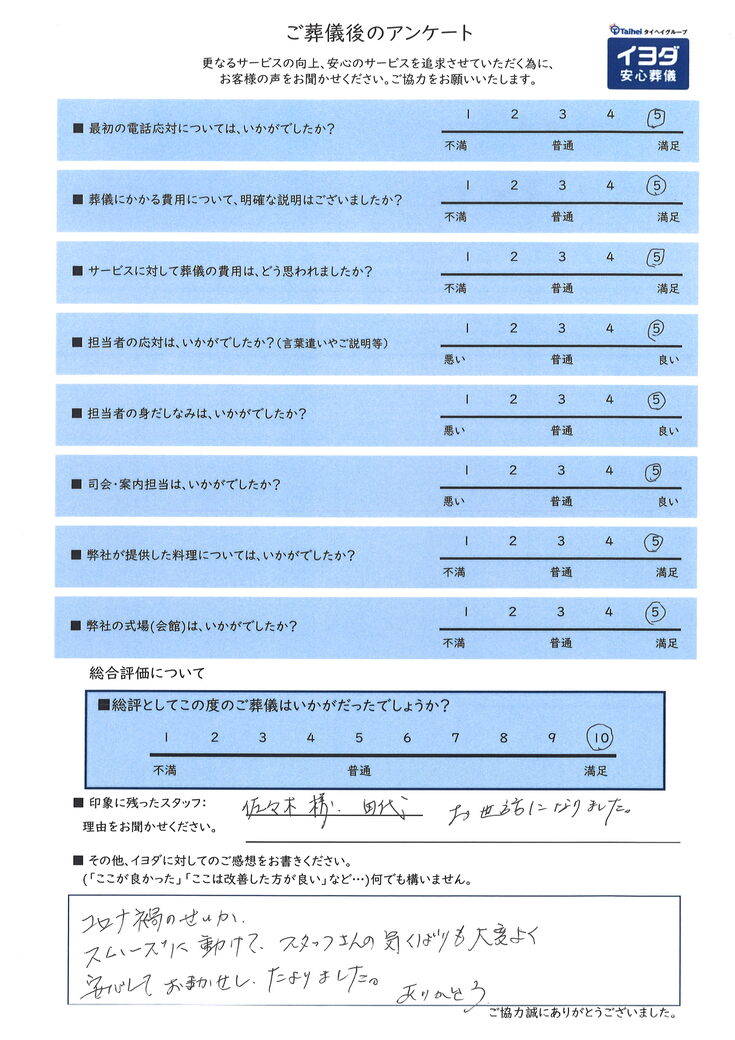 ご葬儀後のアンケート
Taihei タイヘイグループ
イヨダ
安心葬儀
更なるサービスの向上、安心のサービスを追求させていただく為に、
お客様の声をお聞かせください。ご協力をお願いいたします。
■ 最初の電話応対については、いかがでしたか?
1 2 3 4 5
不満 普通 満足
■ 葬儀にかかる費用について、明確な説明はございましたか?
1 2 3 4 5
不満 普通 満足
■ サービスに対して葬儀の費用は、どう思われましたか?
1 2 3 4 5
不満 普通 満足
■ 担当者の応対は、いかがでしたか?(言葉遣いやご説明等)
1 2 3 4 5
悪い 普通 良い
■ 担当者の身だしなみは、いかがでしたか?
1 2 3 4 5
悪い 普通 良い
■ 司会・案内担当は、いかがでしたか?
1 2 3 4 5
悪い 普通 良い
■ 弊社が提供した料理については、いかがでしたか?
1 2 3 4 5
不満 普通 満足
■ 弊社の式場(会館)は、いかがでしたか?
1 2 3 4 5
不満 普通 満足
総合評価について
■総評としてこの度のご葬儀はいかがだったでしょうか?
1 2 3 4 5 6 7 8 9 10
不満 普通 満足
■ 印象に残ったスタッフ: 佐々木様、田代 お世話になりました。
理由をお聞かせください。
■ その他、イヨダに対してのご感想をお書きください。
(「ここが良かった」「ここは改善した方が良い」など…)何でも構いません。
コロナ禍のせいか、
スムーズに動けて、スタッフさんの気くばりも大変よく
安心しておまかせし、たよりました。
ありがとう
ご協力誠にありがとうございました。